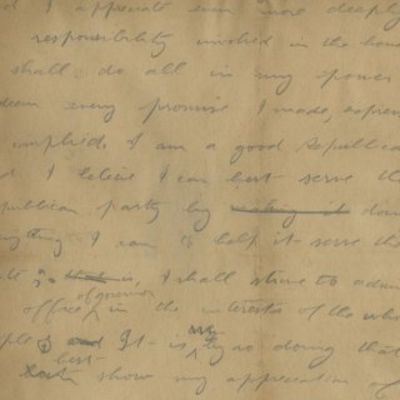 d I appreciate even more deeply
responsibility involved in the hono
shall do all in my power
deem every promise I made, expres
implied. I am a good Republica
d I believe I can best serve the
publican party by making it doin
anything I can to help it serve the
is, I shall strive to admin
of governor
office in the interests of the who
ple and It is by so doing that
best
show my appreciation of